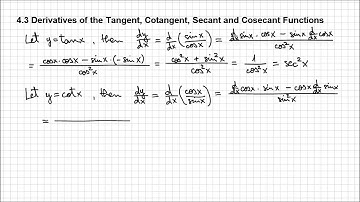 4.3 Derivatives of the Tangent, Cotangent, Secant and Cosecant Functions
Let y=tanx, then dy/dx = d/dx (sinx/cosx) = (d/dx sinx · cosx − sinx d/dx cosx)/cos²x
= (cosx·cosx − sinx·(−sinx))/cos²x = (cos²x + sin²x)/cos²x = 1/cos²x = sec²x
Let y=cotx, then dy/dx = d/dx (cosx/sinx) = (d/dx cosx · sinx − cosx d/dx sinx)/sin²x
=